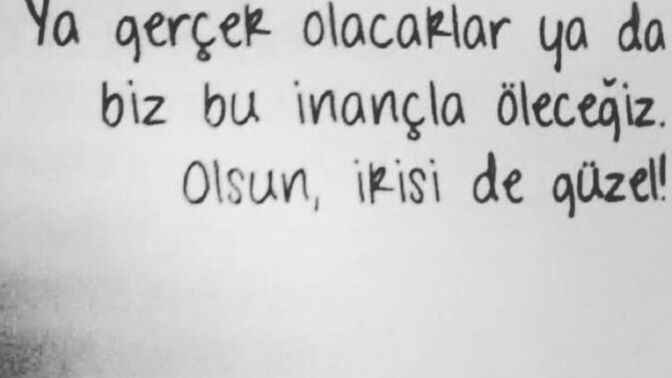 Ya gerçek olacaklar ya da
biz bu inançla öleceğiz.
Olsun, ikisi de güzel!